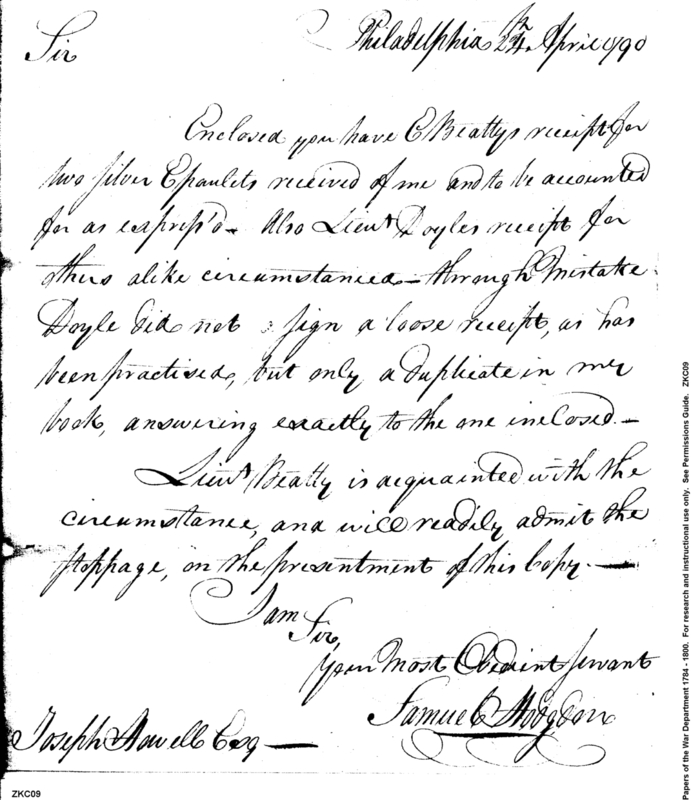 Philadelphia 24th April 1790
Sir
Enclosed you have E Beattys receipt for
two silver Epaulets received of me and to be accounted
for as express'd - Also Lieut Doyles receipt for
others alike circumstanced - through Mistake
Doyle did not sign a loose receipt, as has
been practised, but only a duplicate in my
book, answering exactly to the one inclosed. -
Lieut Beatty is acquainted with the
circumstance, and will readily admit the
stoppage, on the presentment of this Copy. —
I am
Sir,
Your Most Obedient Servant
Samuel Hodgdon
Joseph Howell Esq —
ZKC09
Papers of the War Department 1784 - 1800. For research and instructional use only. See Permissions Guide. ZKC09